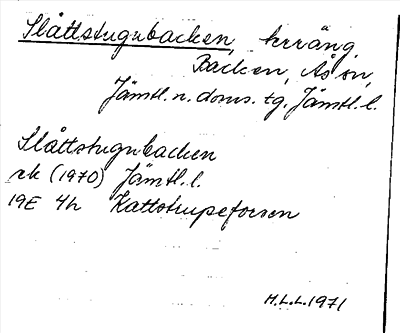 Slåttstugubacken, terräng.
Backen, Ås sn,
Jämtl. n. doms. tg. Jämtl. l.
Slåttstugubacken
ek (1970) Jämtl. l.
19E 4h Kattstrupeforsen
H.L.L. 1971